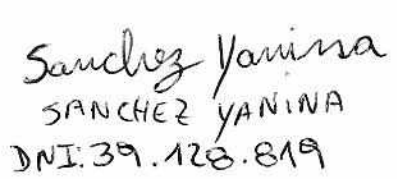 Sanchez Yanina
SANCHEZ YANINA
DNI: 39.128.819